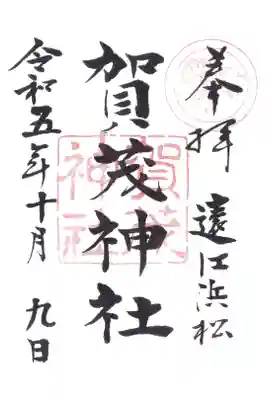 奉拝
遠江浜松
賀茂神社
賀茂
神社
令和五年十月 九日